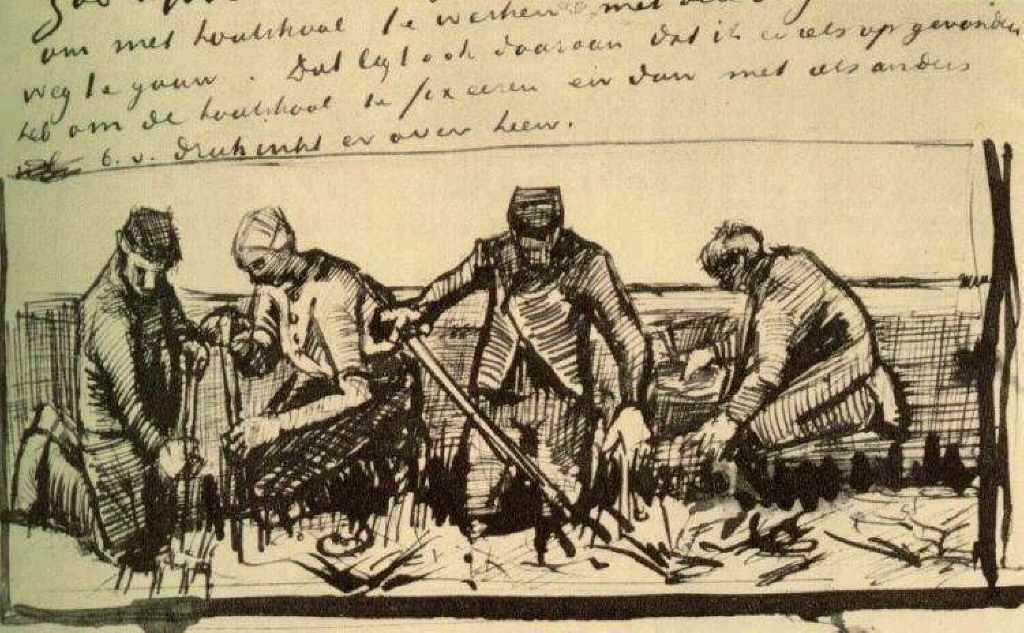 om met houtskool te werken met
weg te gaan. Dat ligt ook daaraan dat ik er iets op gevonden
heb om de houtskool te fixeeren en dan met iets anders
b.v. drukinkt er over heen.